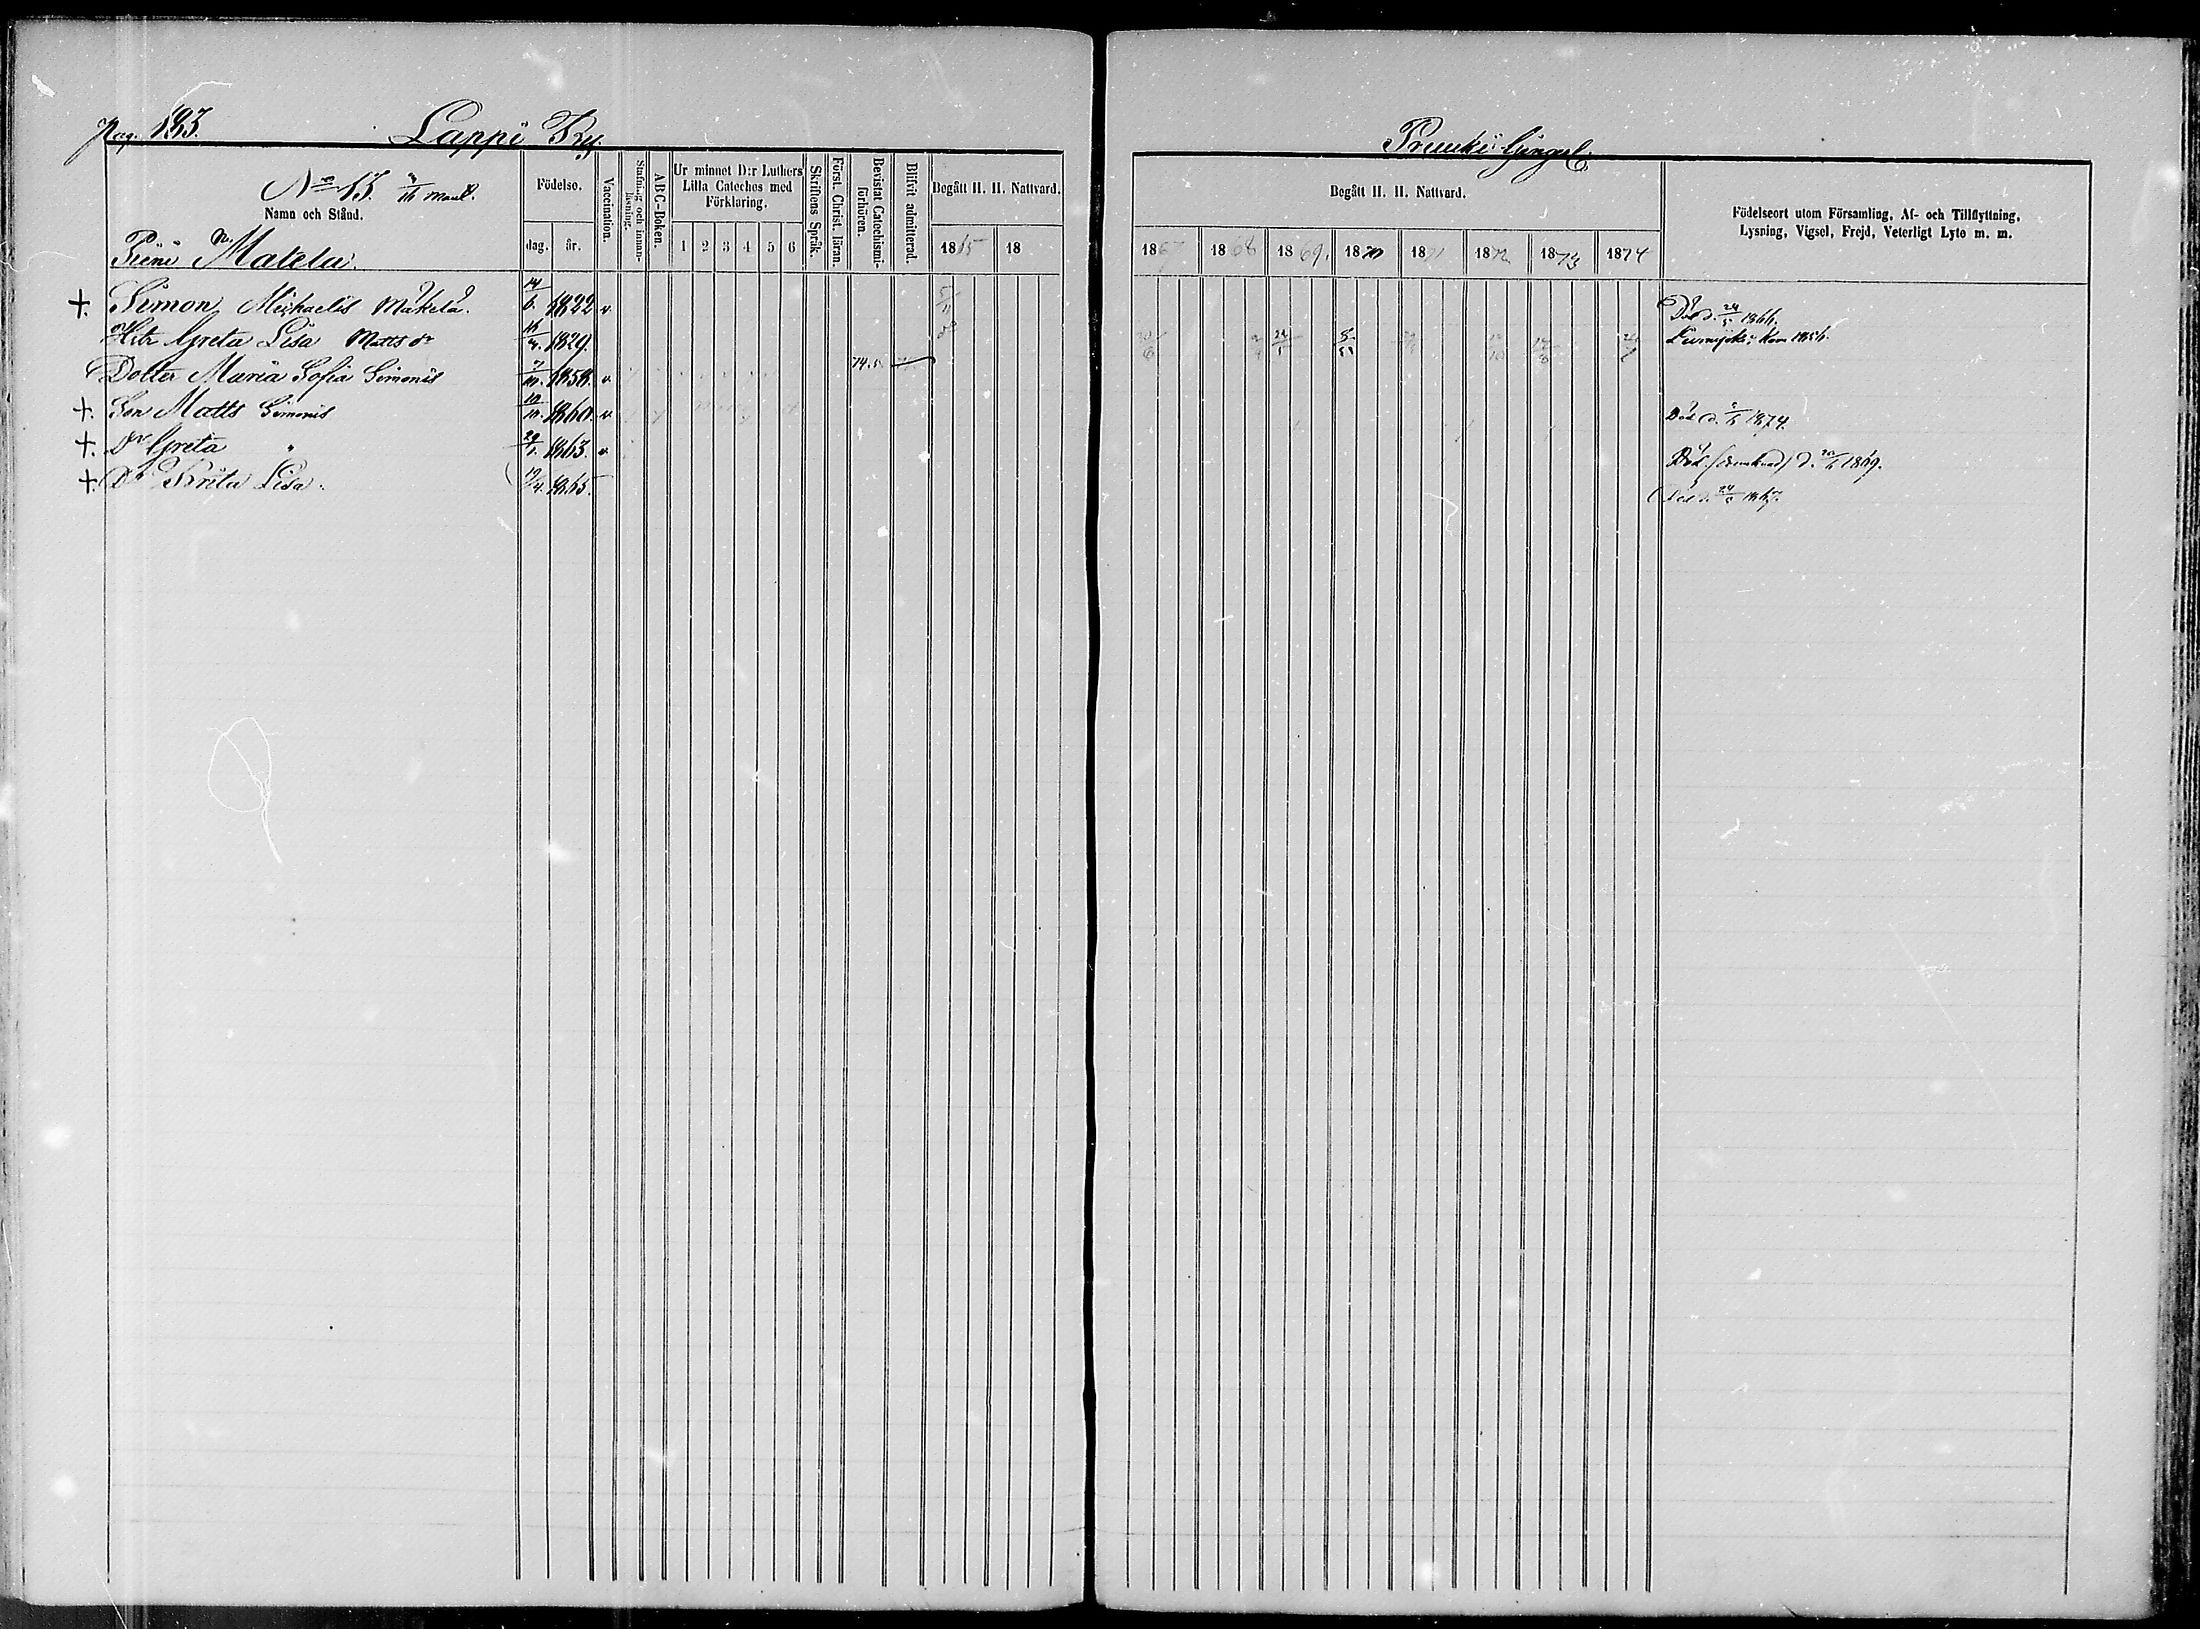 Pag. 183.
Lappi By.
No 15. 3/16 Mantl.
Namn och Stånd.
Födelse.
dag. år.
Vaccination.
Stafning och innanläsning.
ABC-Boken.
Ur minnet D:r Luthers Lilla Cateches med Förklaring.
1 2 3 4 5 6
Skriftens Språk.
Först. Christ. läran.
Bevistat Catechismi-förhören.
Blifvit admitterad.
Begått H. H. Nattvard.
1865 18
Pieni Matela.
+. Simon Michaelis Mäkelä. 14/6. 1822 v.
Hu Greta Lisa Matts dr 1829.
Dotter Maria Sofia Simonis 7/10. 1858. v. 74.
+. Son Matts Simonis 1860. v.
+. Dr Greta " 29/1. 1863. v.
+. Dr Brita Lisa. 19/4. 1865.
Pruuki Gängel.
Begått H. H. Nattvard.
1867 1868 1869. 1870 1871 1872 1873 1874
Födelseort utom Församling, Af- och Tillflyttning,
Lysning, Vigsel, Frejd, Veterligt Lyte m. m.
Död d. 24/5 1866.
Död d. 1874.
Död (drunknad) d. 1869.
Död d. 1867.